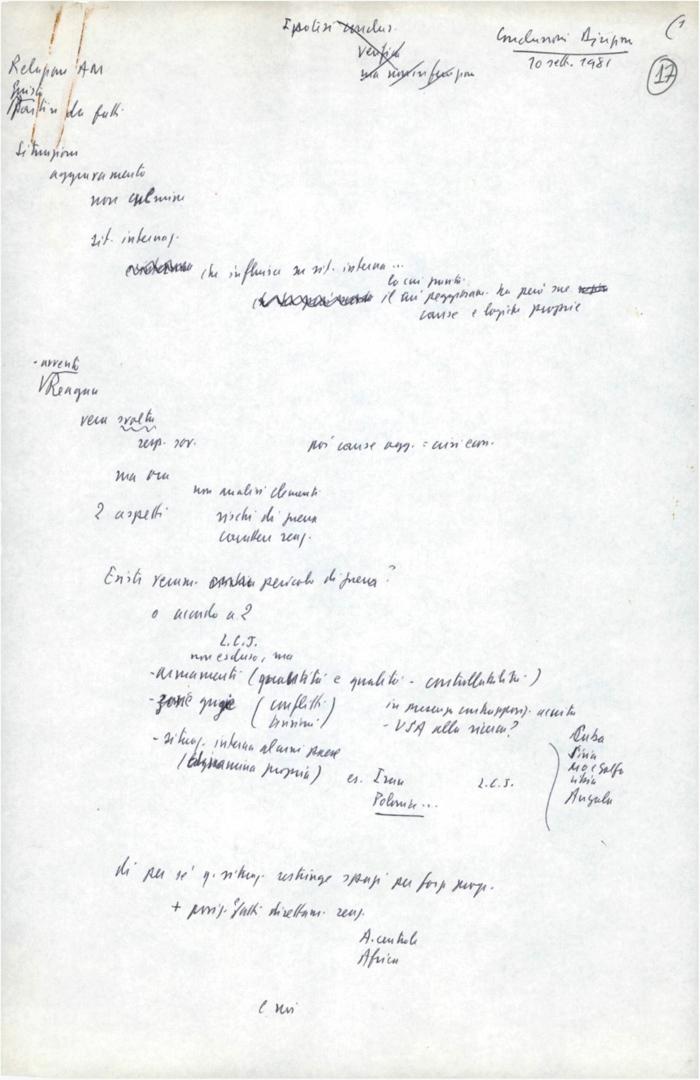 (1
Ipotesi conclus.
verifica
ma non
Conclusioni Direzione
10 sett. 1981
17
Relazione AM
Giusto
Partire da fatti
Situazione
aggravamento
non culmine
sit. internaz.
che influisce su sit. interna...
lo cui
il cui peggioram. ha però sue
cause e logiche proprie
- avvento
Reagan
vera svolta
resp. sov.
poi cause agg. = crisi econ.
ma ora
non analisi elementi
2 aspetti
rischi di guerra
carattere reaz.
Esiste veram. pericolo di guerra?
o accordo a 2
L.C.J.
non escluso, ma
- armamenti (quantità e qualità - controllabilità)
- zone grigie (conflitti
tensioni)
in mezzo contrapposiz. acuita
- USA alla ricerca?
- situaz. interna alcuni paesi
(dinamica propria)
es. Iran
Polonia...
L.C.J.
Cuba
Siria
MO e Golfo
Libia
Angola
di per sé q. situaz. restringe spazi per forze prog.
+ posiz. fatti direttam. reaz.
A. centrale
Africa
e noi